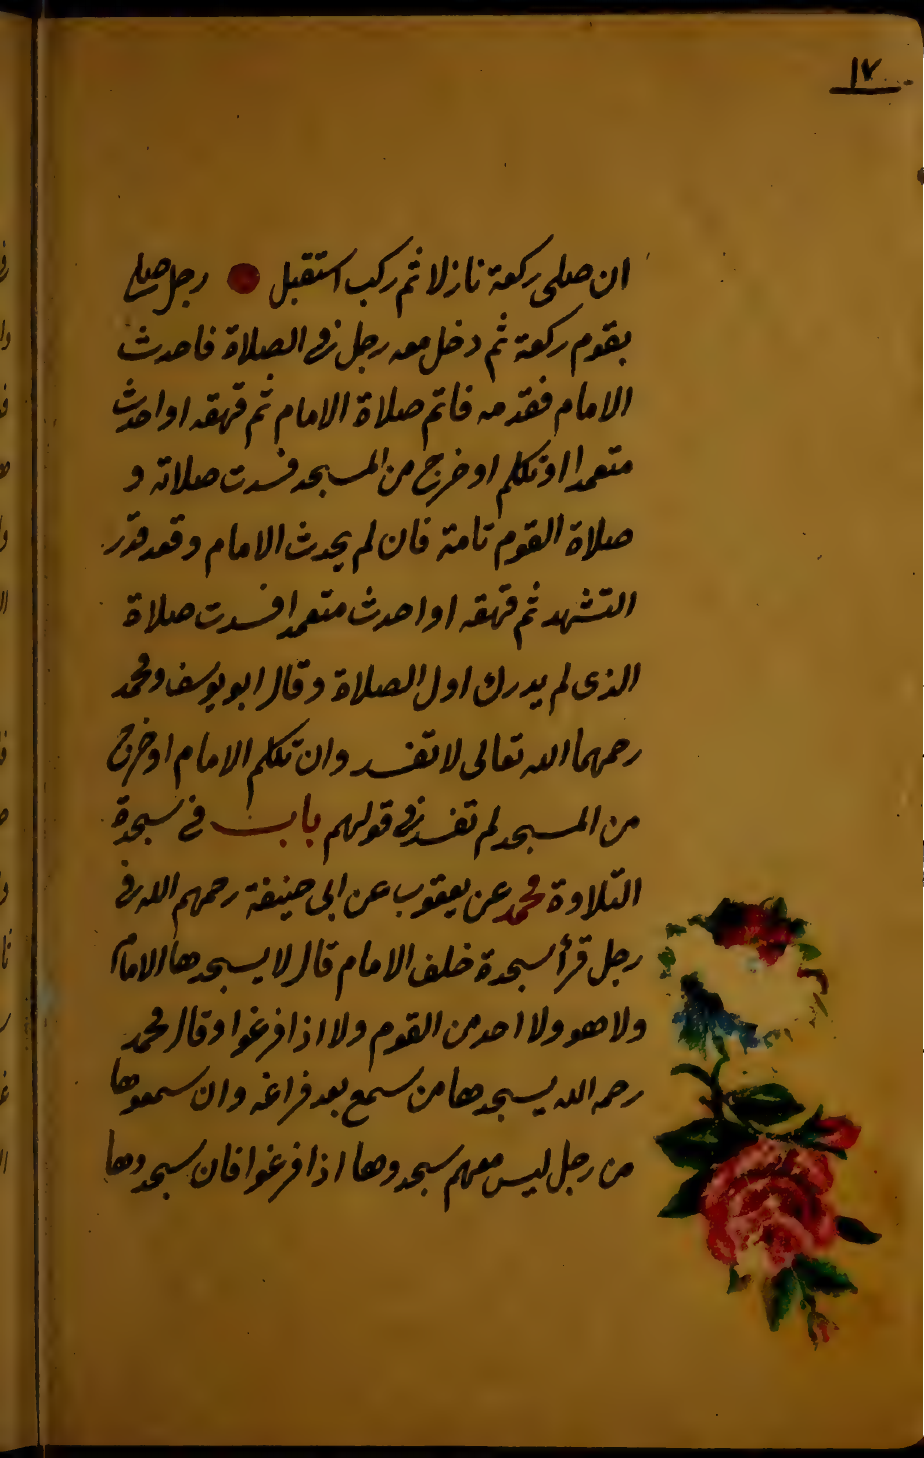 ١٧
ان صلى ركعة نازلا ثم ركب استقبل رجل صلى
بقوم ركعة ثم دخل معه رجل فى الصلاة فاحدث
الامام فقدمه فاتم صلاة الامام ثم قهقه او احدث
متعمدا او تكلم او خرج من المسجد فسدت صلاته و
صلاة القوم تامة فان لم يحدث الامام وقعد قدر
التشهد ثم قهقه او احدث متعمدا فسدت صلاة
الذى لم يدرك اول الصلاة وقال ابو يوسف ومحمد
رحمهما الله تعالى لا تفسد وان تكلم الامام او خرج
من المسجد لم تفسد فى قولهم باب فى سجدة
التلاوة محمد عن يعقوب عن ابى حنيفة رحمهم الله فى
رجل قرأ سجدة خلف الامام قال لا يسجدها الامام
ولا هو ولا احد من القوم ولا اذا فرغوا وقال محمد
رحمه الله يسجدها من سمع بعد فراغه وان سمعوها
من رجل ليس معهم سجدوها اذا فرغوا فان سجدوها